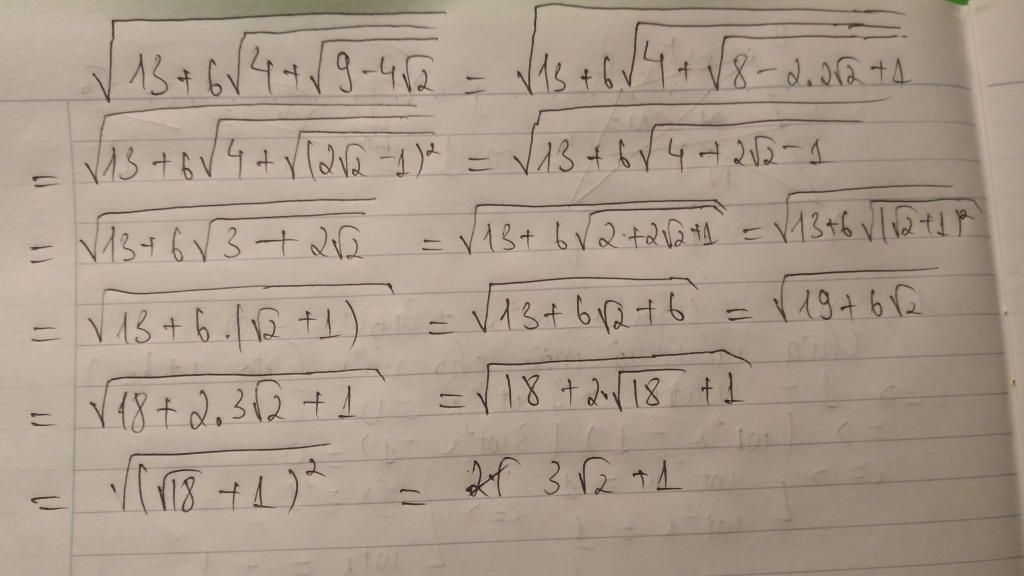 √(13+6√(4+√(9-4√2))) = √(13+6√(4+√(8-2.2√2+1)))
= √(13+6√(4+√((2√2-1)²))) = √(13+6√(4+2√2-1))
= √(13+6√(3+2√2)) = √(13+6√(2+2√2+1)) = √(13+6√((√2+1)²))
= √(13+6.(√2+1)) = √(13+6√2+6) = √(19+6√2)
= √(18+2.3√2+1) = √(18+2.√18+1)
= √((√18+1)²) = 3√2+1